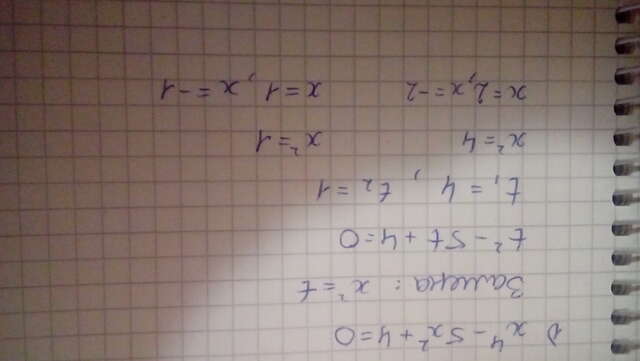 1) x⁴ - 5x² + 4 = 0
Замена: x² = t
t² - 5t + 4 = 0
t₁ = 4 , t₂ = 1
x² = 4 x² = 1
x = 2, x = -2 x = 1, x = -1